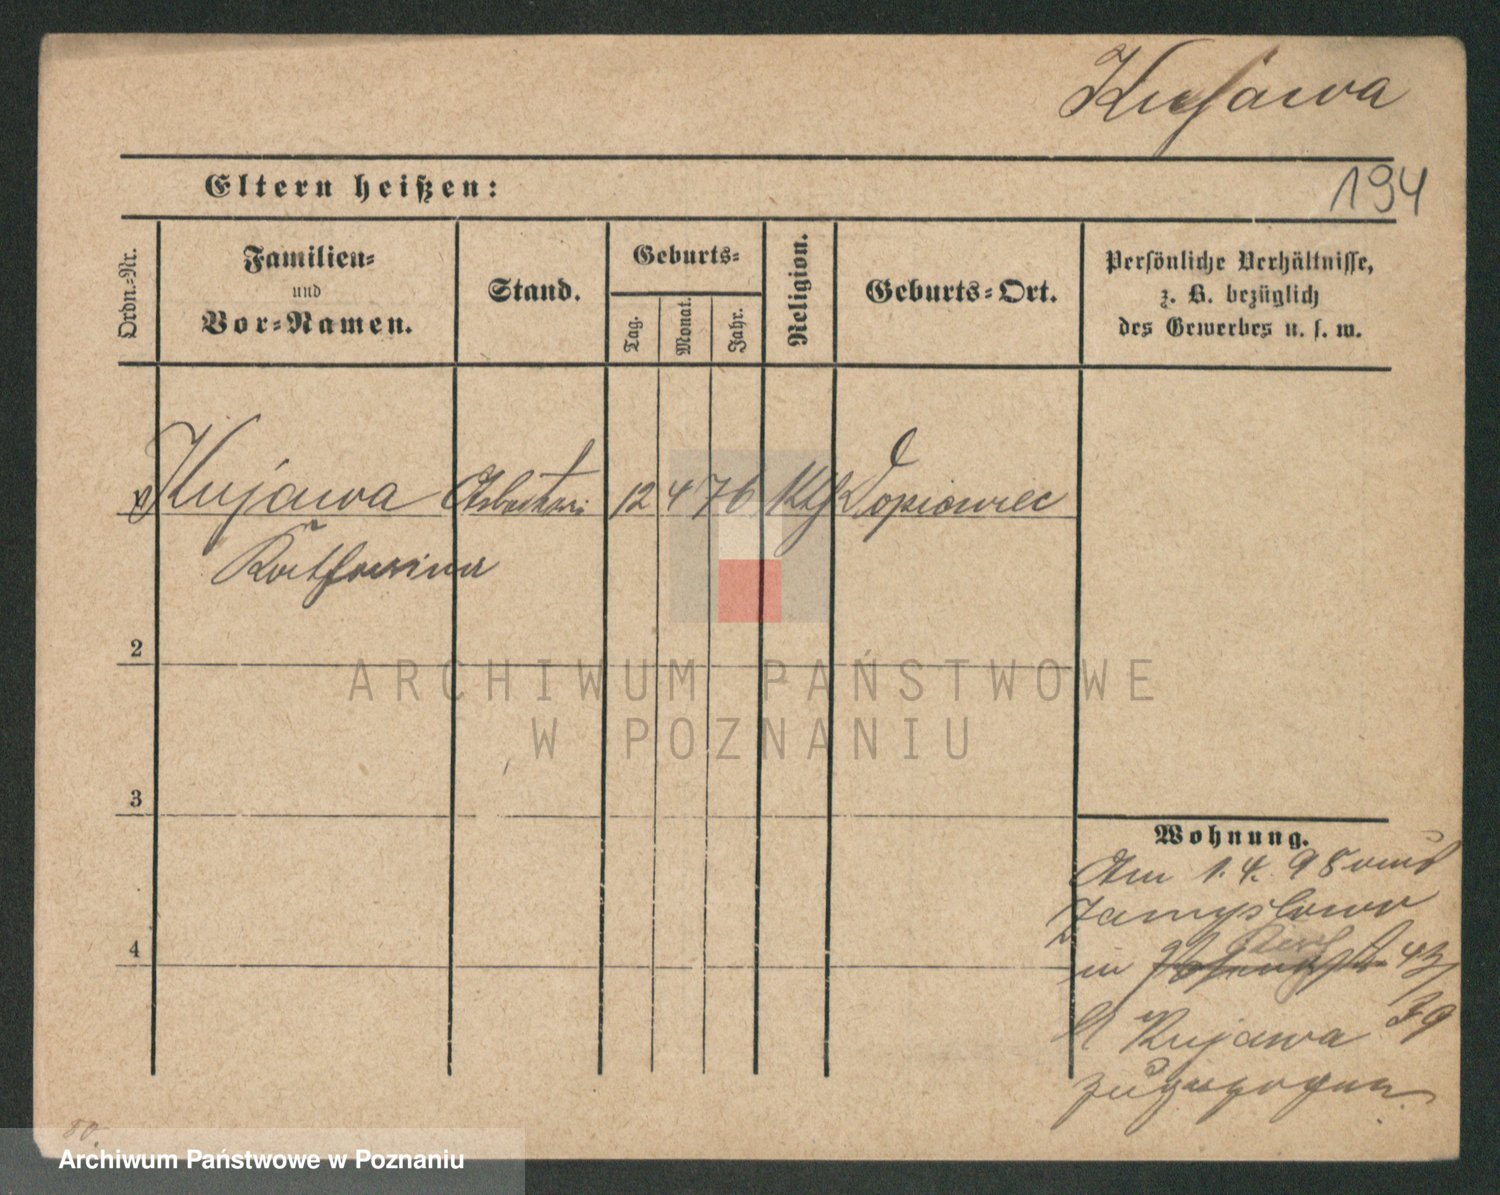 Kujawa
194
Eltern heißen:
Ordn.-Nr.
Familien-
und
Vor-Namen.
Stand.
Geburts-
Tag.
Monat.
Jahr.
Religion.
Geburts-Ort.
Persönliche Verhältnisse,
z. B. bezüglich
des Gewerbes u. s. w.
Kujawa 12 4 76 Kth Dopiewiec
Katharina
2
3
4
ARCHIWUM PAŃSTWOWE
W POZNANIU
Wohnung.
Am 1.4.98 von
Zamyslowo
in 43/
39
b Kujawa
zugezogen
80.
Archiwum Państwowe w Poznaniu